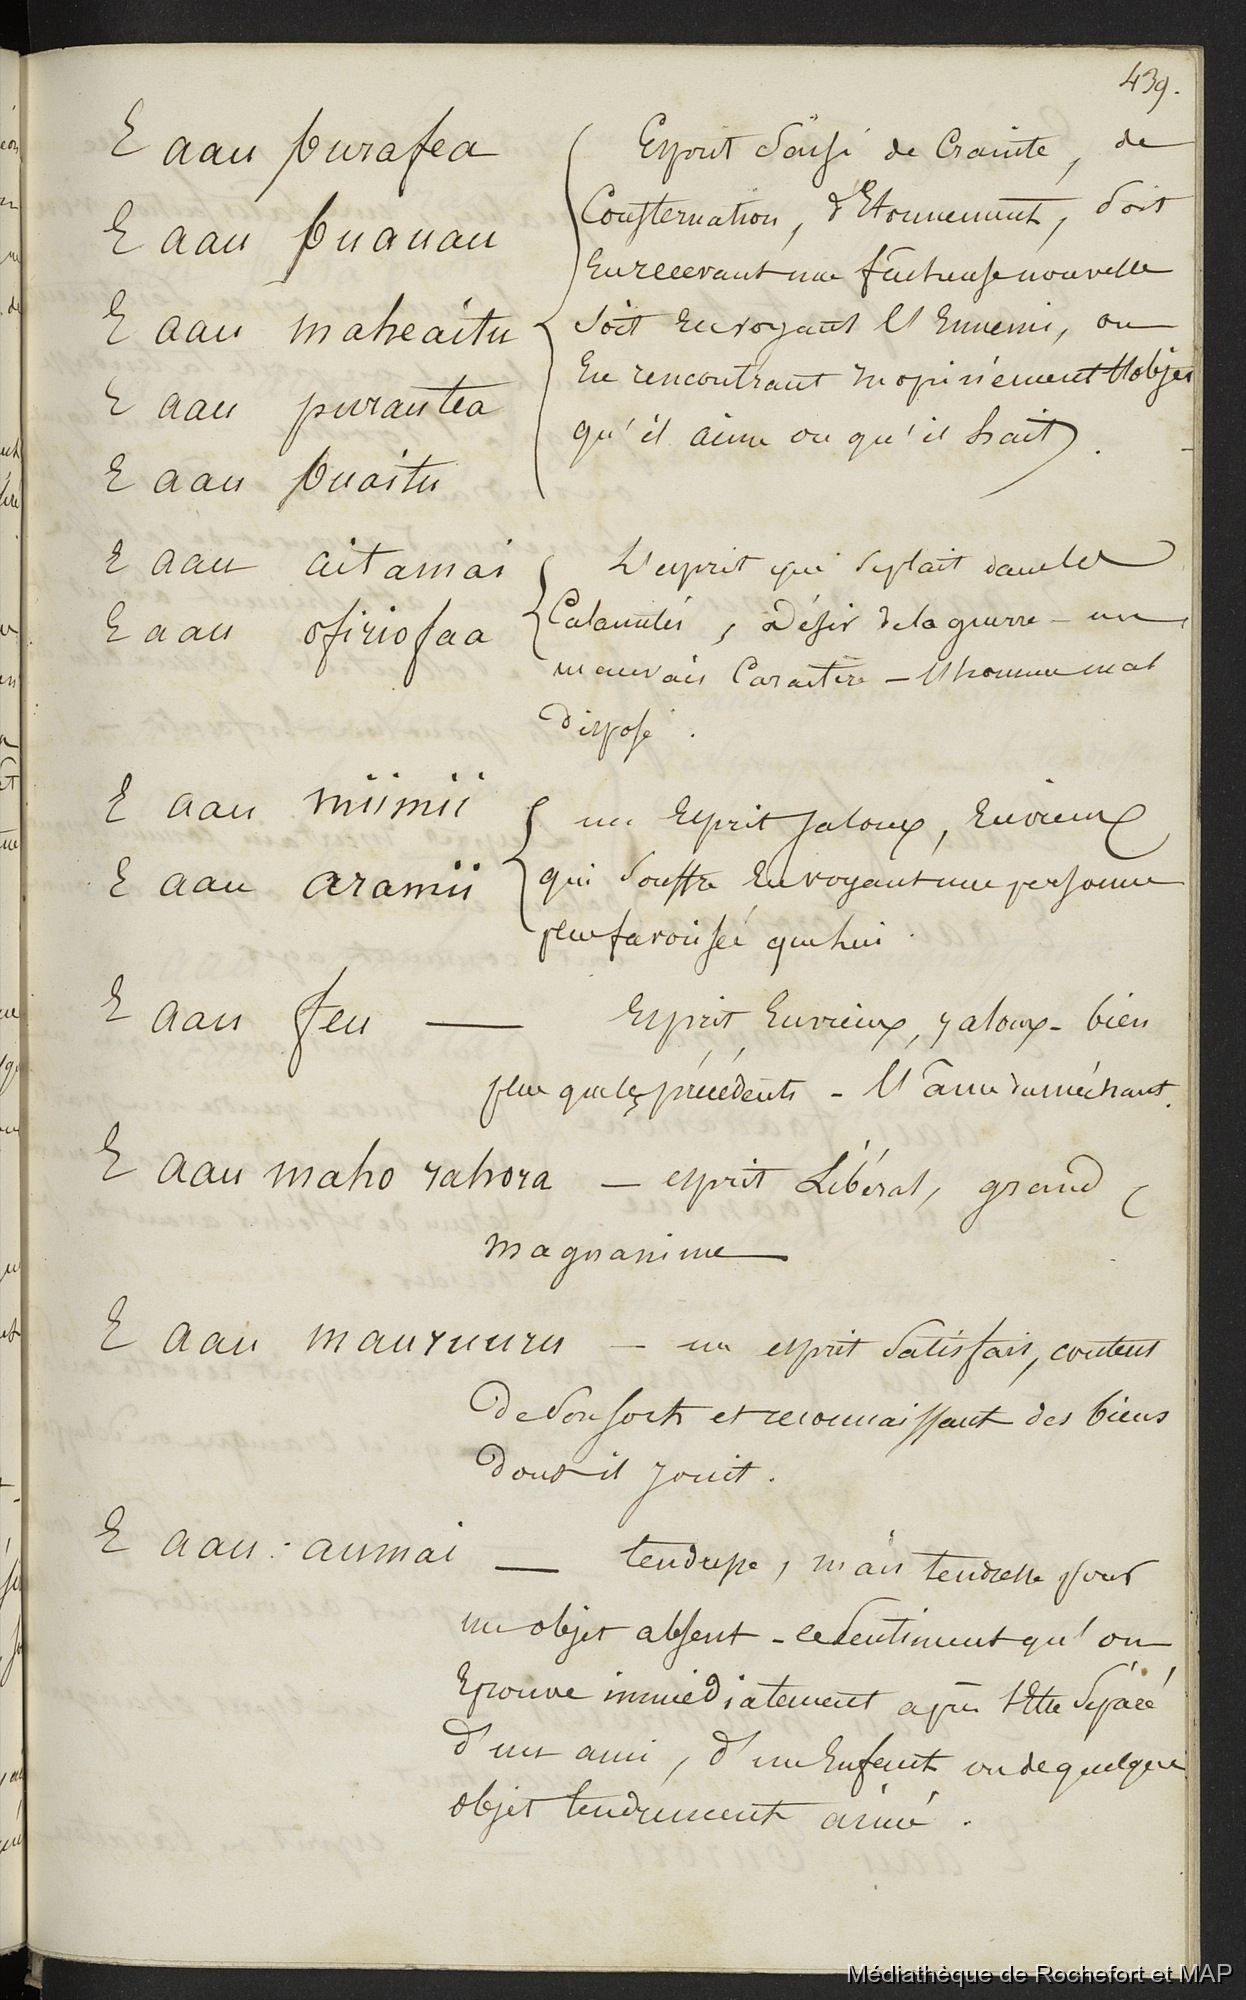 439.
E aau purafea
E aau puauau
E aau maheaitu
E aau purautea
E aau puaitu
Esprit saisi de Crainte, de
Consternation, d'Etonnement, soit
En recevant une fâcheuse nouvelle
soit En voyant l'Ennemi, ou
En rencontrant inopinément l'objet
qu'il aime ou qu'il hait.
E aau aitamai
E aau ofiriofaa
L'esprit qui se plait dans les
Calamités, Désir de la guerre - un
mauvais Caractère - l'homme mal
disposé.
E aau miimii
E aau aramii
un Esprit jaloux, Envieux
qui souffre En voyant une personne
plus favorisée que lui.
E aau feu — Esprit Envieux, jaloux - bien
plus que les précédents - l'âme du méchant.
E aau maho rahora — esprit Libéral, grand
magnanime —
E aau mauruuru — un esprit satisfait, content
de son sort et reconnaissant des biens
dont il jouit.
E aau aumai — tendresse, mais tendresse pour
un objet absent - ce sentiment qu'on
Eprouve immédiatement après s'être séparé
d'un ami, d'un Enfant ou de quelque
objet tendrement aimé.
Médiathèque de Rochefort et MAP